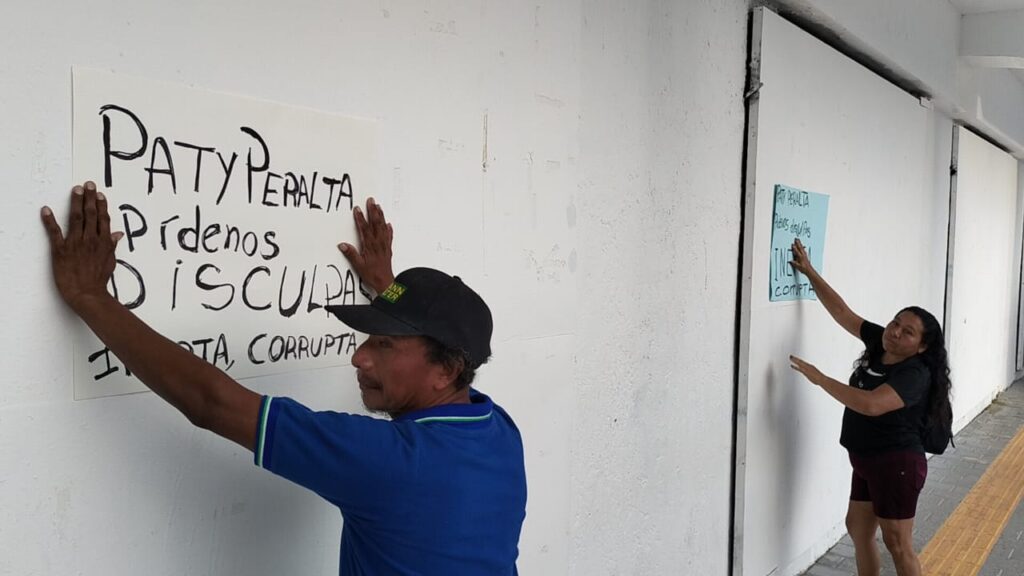 PATY PERALTA
Pídenos
DISCULPAS
INEPTA, CORRUPTA
PATY PERALTA
Pídenos disculpas
CORRUPTA